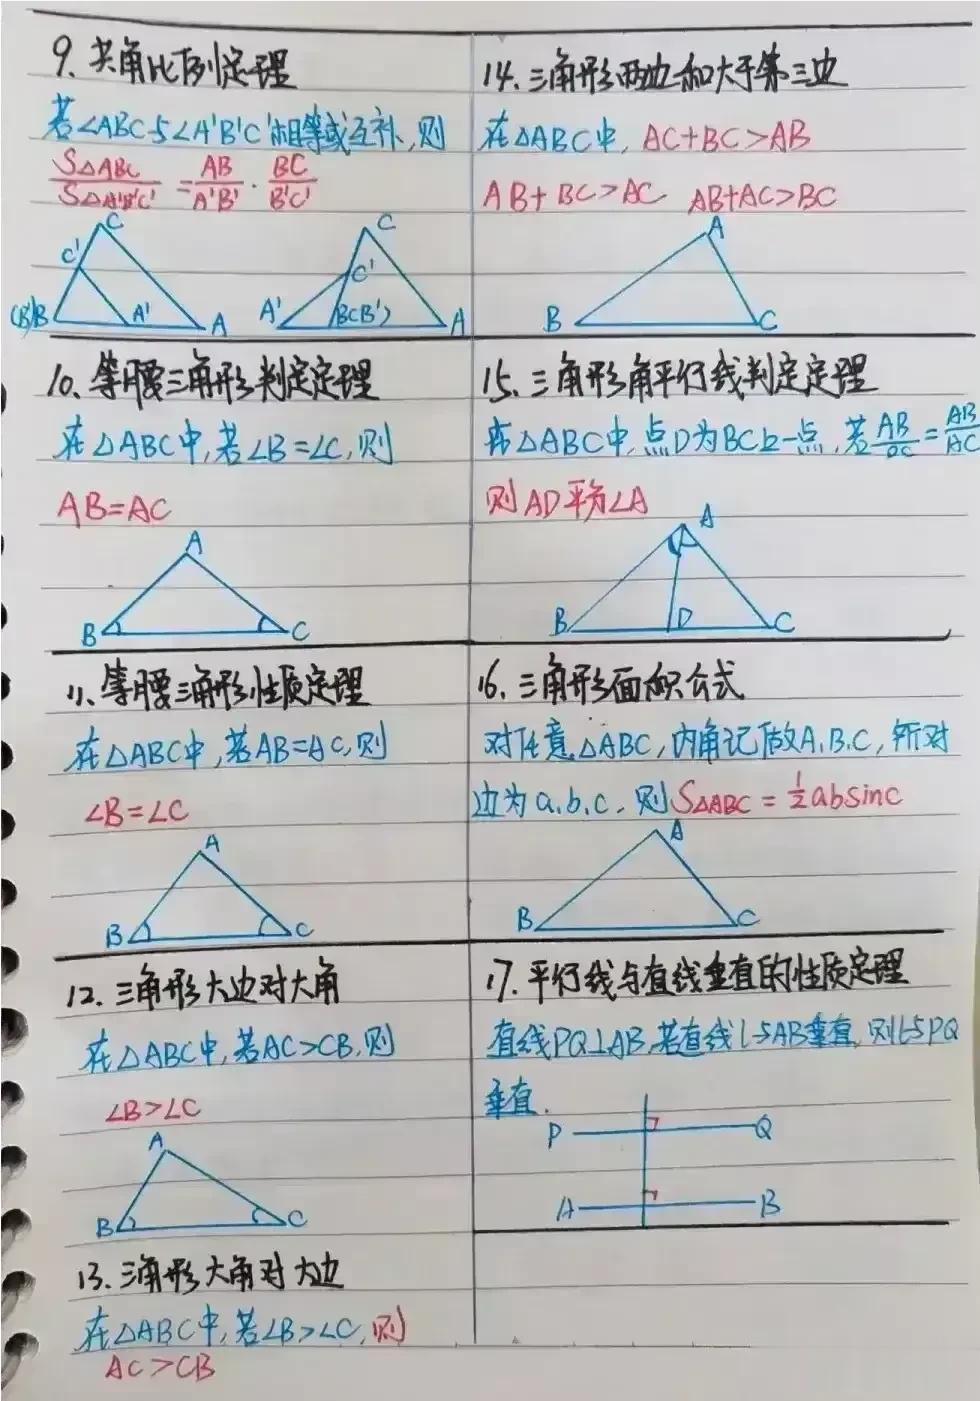 9. 共角比例定理
若∠ABC与∠A'B'C'相等或互补,则
S△ABC/S△A'B'C' = AB/A'B' · BC/B'C'
C
C'
(B')B
A'
A
C
C'
A'
B(B')
A
10. 等腰三角形判定定理
在△ABC中,若∠B=∠C,则
AB=AC
A
B
C
11. 等腰三角形性质定理
在△ABC中,若AB=AC,则
∠B=∠C
A
B
C
12. 三角形大边对大角
在△ABC中,若AC>CB,则
∠B>∠C
A
B
C
13. 三角形大角对大边
在△ABC中,若∠B>∠C,则
AC>CB
14. 三角形两边和大于第三边
在△ABC中, AC+BC>AB
AB+BC>AC AB+AC>BC
A
B
C
15. 三角形角平行线判定定理
在△ABC中,点D为BC上一点,若AB/DC=AB/AC
则AD平分∠A
A
B
D
C
16. 三角形面积公式
对任意△ABC,内角记做A.B.C,所对
边为a.b.c. 则S△ABC=½absinc
A
B
C
17. 平行线与直线垂直的性质定理
直线PQ⊥AB,若直线l与AB垂直,则l与PQ
垂直.
P
Q
A
B